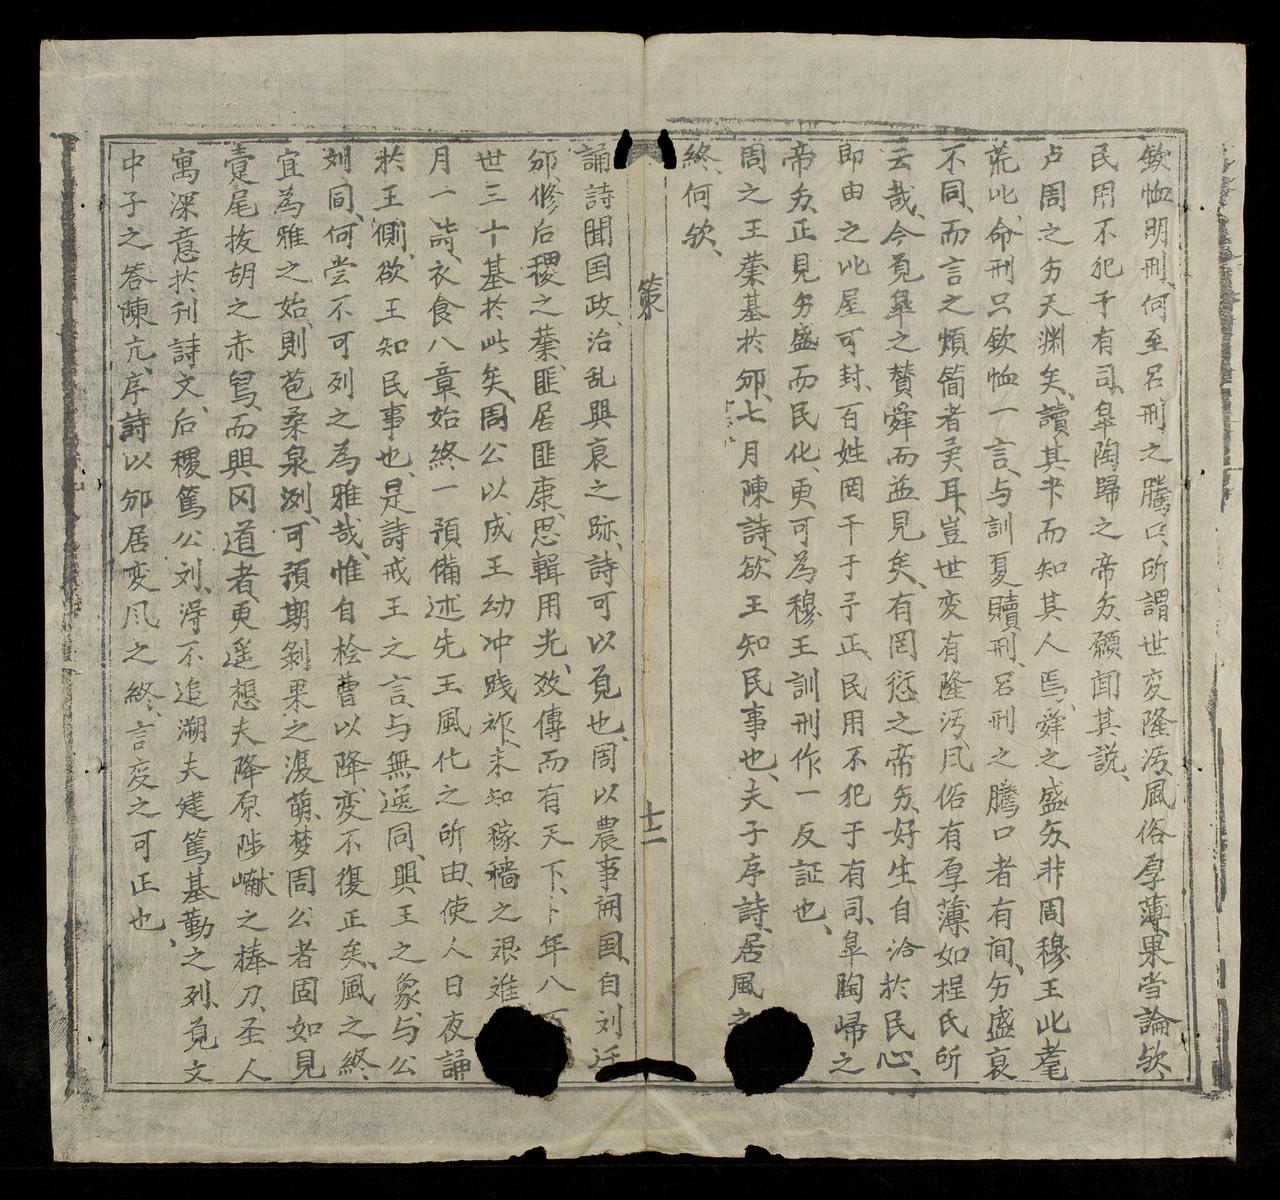 欽恤明刑、何至呂刑之騰口、所謂世変隆汚、風俗厚薄、果当論欤、
民用不犯于有司、皐陶歸之帝㐰、願闻其説、
卢周之㐰天渊矣、讀其书而知其人焉、舜之盛㐰、非周穆王此耄
荒比、命刑只欽恤一言、与訓夏贖刑、呂刑之騰口者有间、㐰盛衰
不同、而言之煩簡者異耳、豈世変有隆汚、凡俗有厚薄、如程氏所
云哉、今覓皐之賛舜而益見矣、有罔愆之帝㐰、好生自洽於民心、
即由之比屋可封、百姓罔干于予正、民用不犯于有司、皐陶㱕之
帝㐰、正見㐰盛而民化、更可為穆王訓刑作一反証也、
周之王業基於邠、七月陳詩、欲王知民事也、夫子序詩、居風之
終、何欤、
策
十二
誦詩聞国政、治乱興衰之跡、詩可以覓也、周以農事開国、自刘迁
邠、修后稷之業、匪居匪康、思輯用光、效傳而有天下、卜年八
世三十基於此矣、周公以成王幼冲践祚、未知稼穑之艰难
月一詩、衣食八章始終一預備、述先王風化之所由、使人日夜誦
於王側、欲王知民事也、是詩戒王之言、与無逸同、興王之象、与公
刘同、何尝不可列之為雅哉、惟自桧曹以降、変不復正矣、風之終、
宜為雅之始、則苞柔泉洌、可預期剝果之復萌、梦周公者固如見
疐尾拔胡之赤舃、而興冈道者、更遥想夫降原陟巘之捧刀、圣人
寓深意於刊詩文、后稷篤公刘、淂不追溯夫建篤基勤之列、覓文
中子之答陳亢、序詩以邠居变凡之終、言变之可正也、